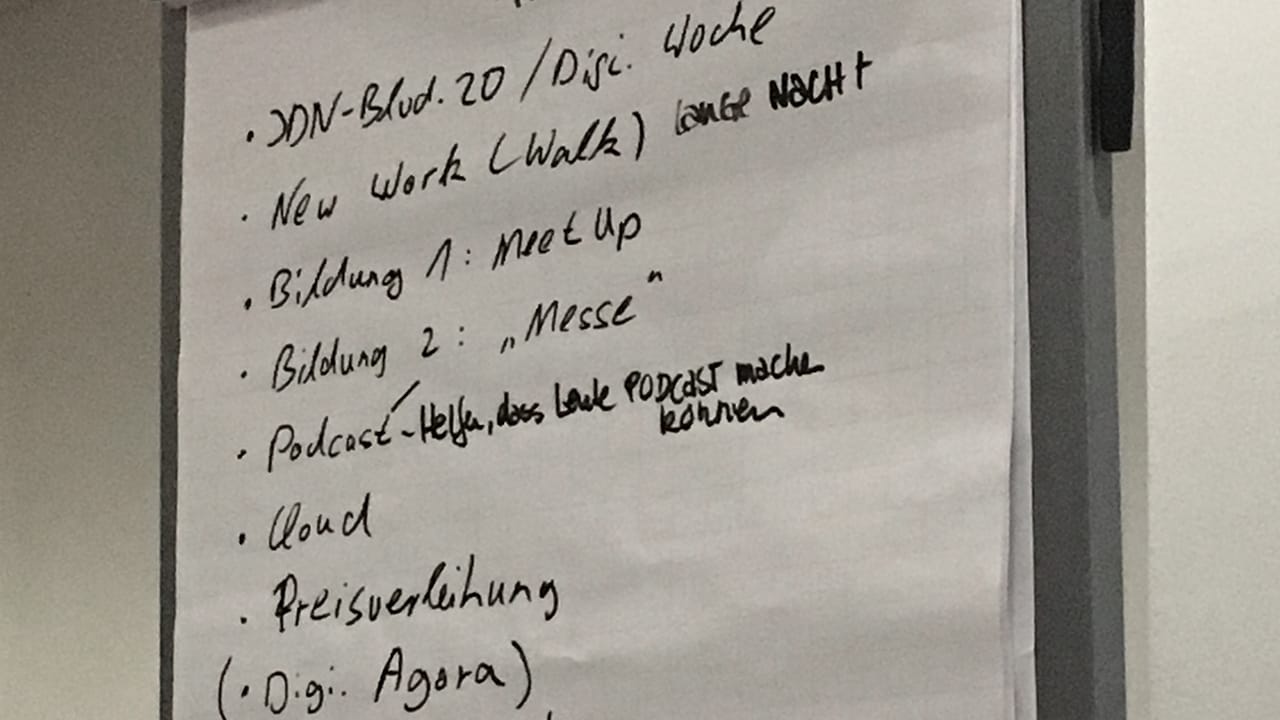 • JDN-Blvd. 20 / Digi. Woche
• New Work (Walk) Lange NACHT
• Bildung 1: MeetUp
• Bildung 2: „Messe"
• Podcast - Helfen, dass Leute PODCAST machen
können
• Cloud
• Preisverleihung
(• Digi. Agora)